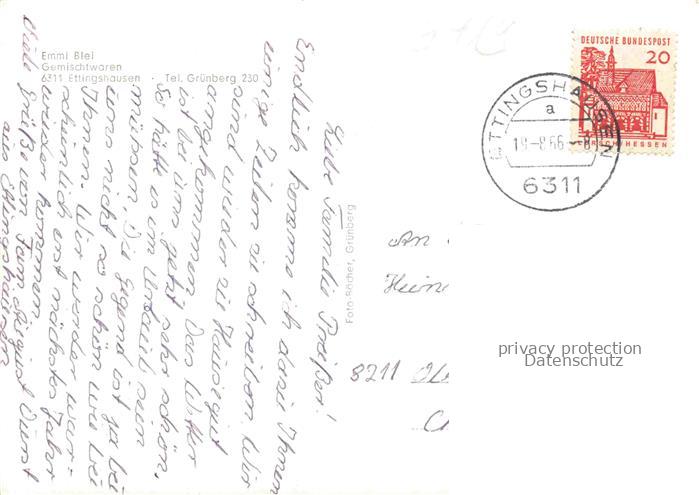 Emmi Blei
Gemischtwaren
6311 Ettingshausen · Tel. Grünberg 230
Liebe Familie Preißer!
Endlich komme ich dazu Ihnen
einige Zeilen zu schreiben. Wir
sind wieder zu Hause gut
angekommen. Das Wetter
ist bei uns jetzt sehr schön,
So hätte es im Urlaub sein
müssen. Die Gegend ist ja bei
uns nicht so schön wie bei
Ihnen. Wir werden war-
scheinlich erst nächstes Jahr
wieder kommen.
Viele Grüße von Fam. August
aus Ettingshausen
Foto-Bächer, Grünberg
DEUTSCHE BUNDESPOST
20
LORSCH/HESSEN
ETTINGSHAUSEN
a
19-8.66-8
6311
An
Hein
8211
privacy protection
Datenschutz